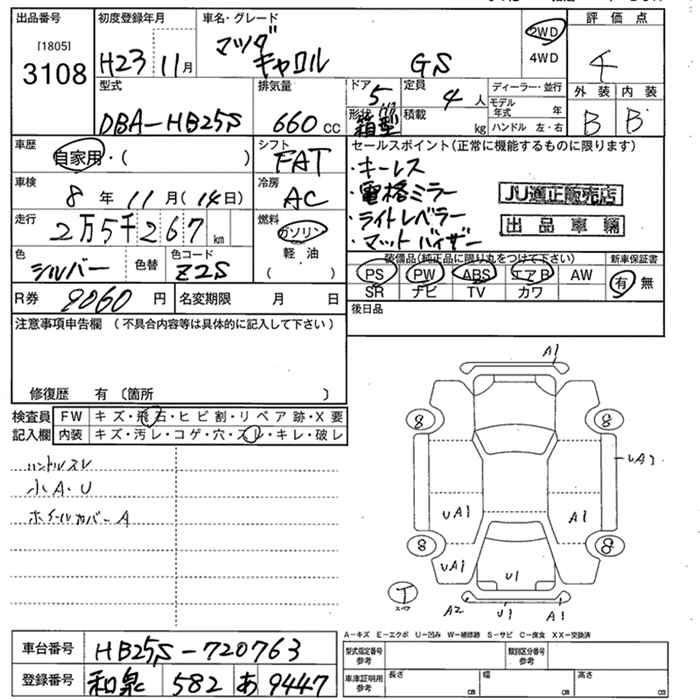 出品番号
[1805]
3108
初度登録年月
H23 11月
車名・グレード
マツダ
キャロル GS
2WD
4WD
評価点
4
外装 内装
B B
型式
DBA-HB25S
排気量
660 cc
ドア
5
形状
箱型
定員
4 人
積載
kg
ディーラー・並行
モデル年式 年
ハンドル 左・右
車歴
自家用・( )
シフト
FAT
車検
8 年 11 月 (14日)
冷房
AC
走行
2万5千267 km
燃料
ガソリン
軽油
( )
色
シルバー
色替
色コード
Z2S
R券 9060 円
名変期限 月 日
セールスポイント(正常に機能するものに限ります)
・キーレス
・電格ミラー
・ライトレベラー
・マットバイザー
JU適正販売店
出品車輌
装備品(純正品に限り丸をつけて下さい)
新車保証書
PS PW ABS エアB AW
SR ナビ TV カワ
有 無
後日品
注意事項申告欄(不具合内容等は具体的に記入して下さい)
修復歴 有〔箇所 〕
検査員
記入欄
FW キズ・飛石・ヒビ割・リペア跡・X要
内装 キズ・汚レ・コゲ・穴・スレ・キレ・破レ
ハンドルスレ
小A・U
ホイールカバーA
A1
8 8
UA2
UA1 A1
8 8
UA1
U1
T
スペア
A2 U1 A1
A-キズ E-エクボ U-凹み W-補修跡 S-サビ C-腐食 XX-交換済
車台番号 HB25S-720763
登録番号 和泉 582 あ 9447
型式指定番号
参考
類別区分番号
参考
車庫証明用
参考
長さ cm
幅 cm
高さ cm